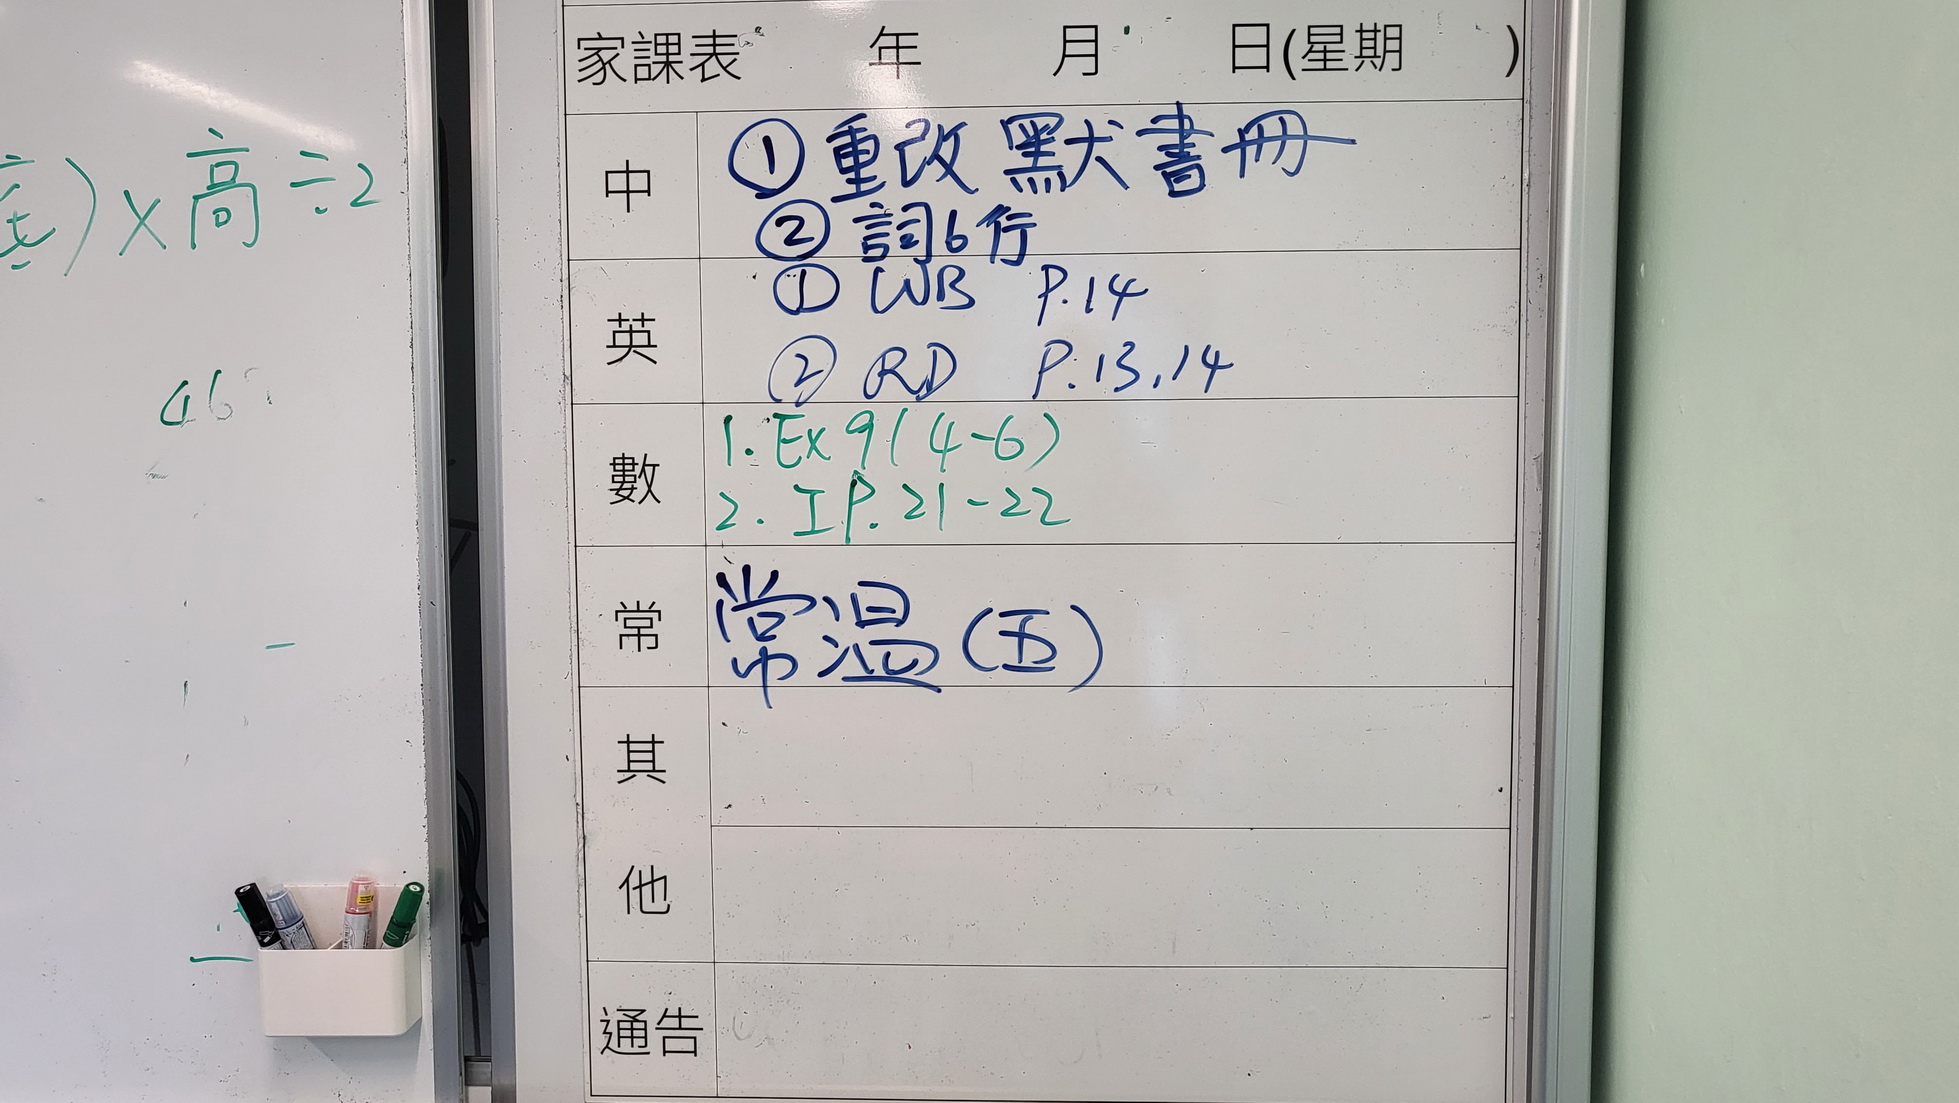 底) × 高 ÷ 2
46
家課表 年 月 日(星期 )
中
① 重改默書冊
② 詞6行
英
① WB P.14
② RD P.13,14
數
1. Ex 9(4-6)
2. I P. 21-22
常
常温(五)
其
他
通告